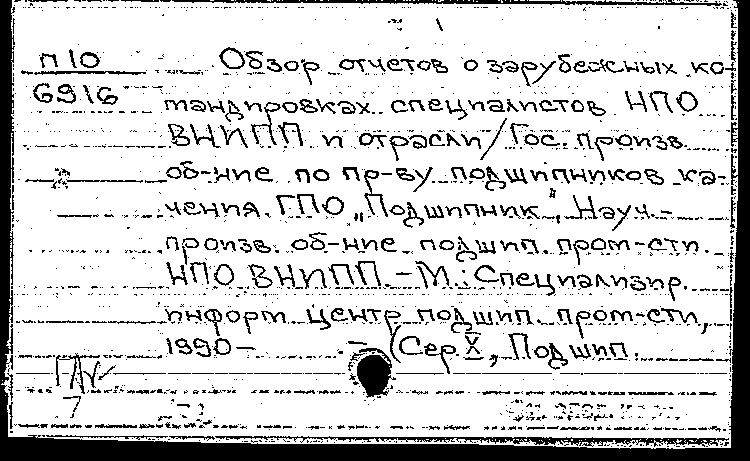 П10
6916
Обзор отчетов о зарубежных ко-
мандировках специалистов НПО
ВНИПП и отрасли/Гос. произв.
об-ние по пр-ву подшипников ка-
чения. ГПО „Подшипник“, Науч.-
произв. об-ние подшип. пром-сти.
НПО ВНИПП. – М.: Специализир.
информ центр подшип. пром-сти,
1990 – . – (Сер. X, Подшип.
7